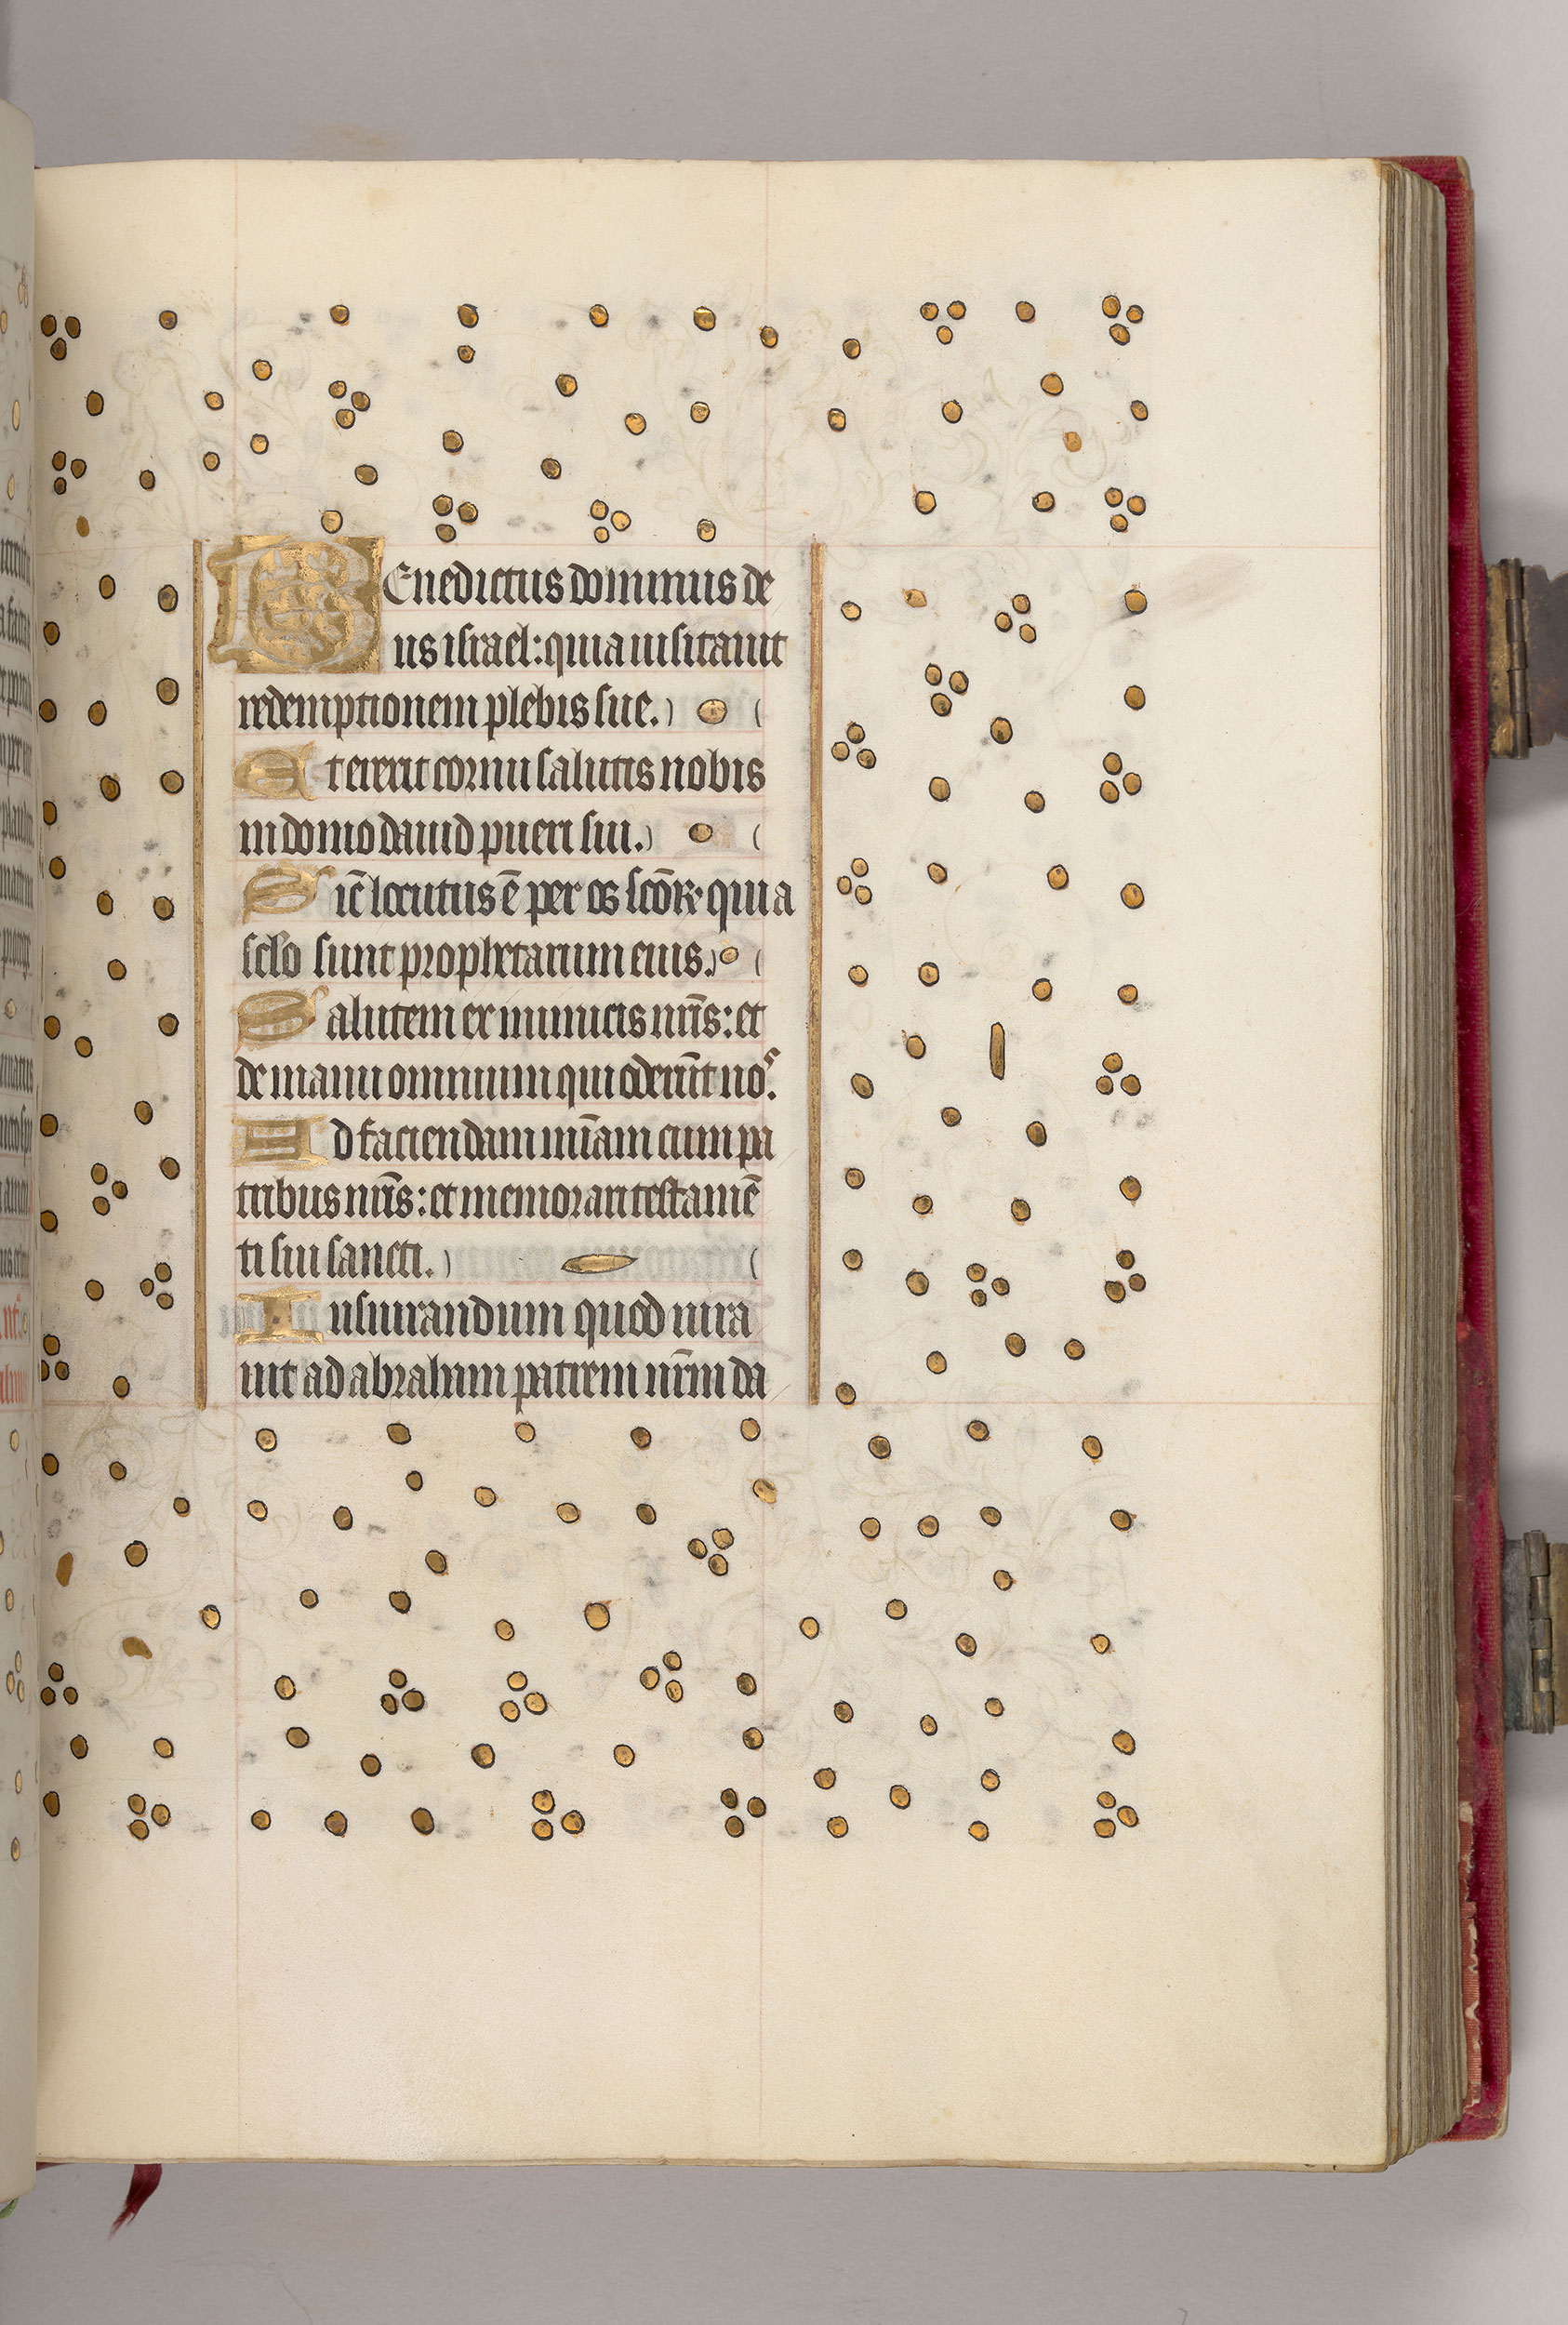 BEnedictus dominus de
us israel: quia uisitauit
redemptionem plebis sue.
Et erexit cornu salutis nobis
in domo dauid pueri sui.
Sic̄ locutus ē per os sc̄oꝝ qui a
sclo sunt prophetarum eius.
Salutem ex inimicis nr̄is: et
de manu omnium qui oderūt nos.
Ad faciendam mīam cum pa
tribus nr̄is: et memorari testamē
ti sui sancti.
Iusiurandum quod iura
uit ad abraham patrem nr̄m da